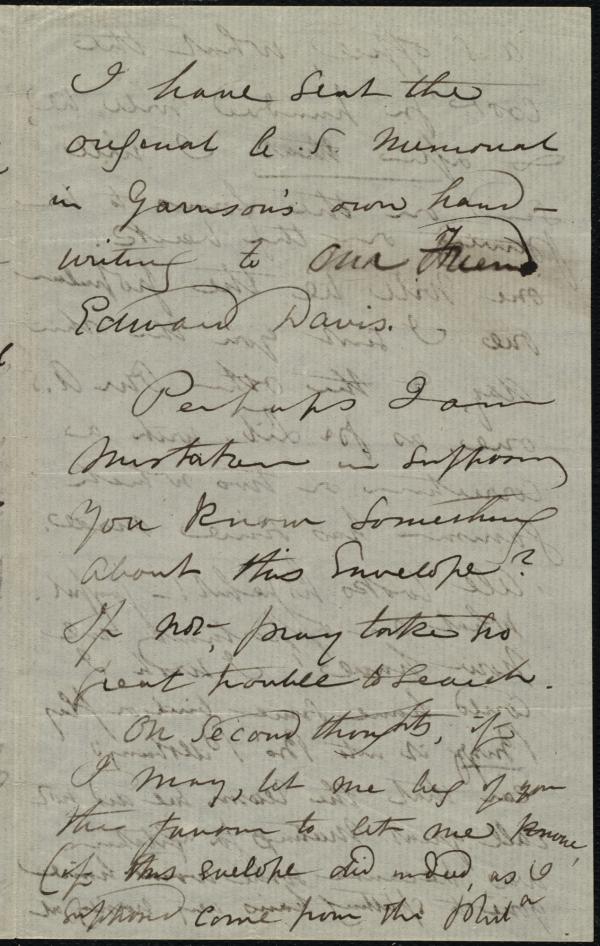 I have sent the
original A. S. Memorial
in Garrison's own hand-
writing to our Friend
Edward Davis.
Perhaps I am
mistaken in supposing
you know something
about this Envelope?
If not, pray take no
great trouble to search.
On second thoughts, if
I may, let me beg of you
the favour to let me know,
(if this envelope did indeed, as I
supposed come from the Phila